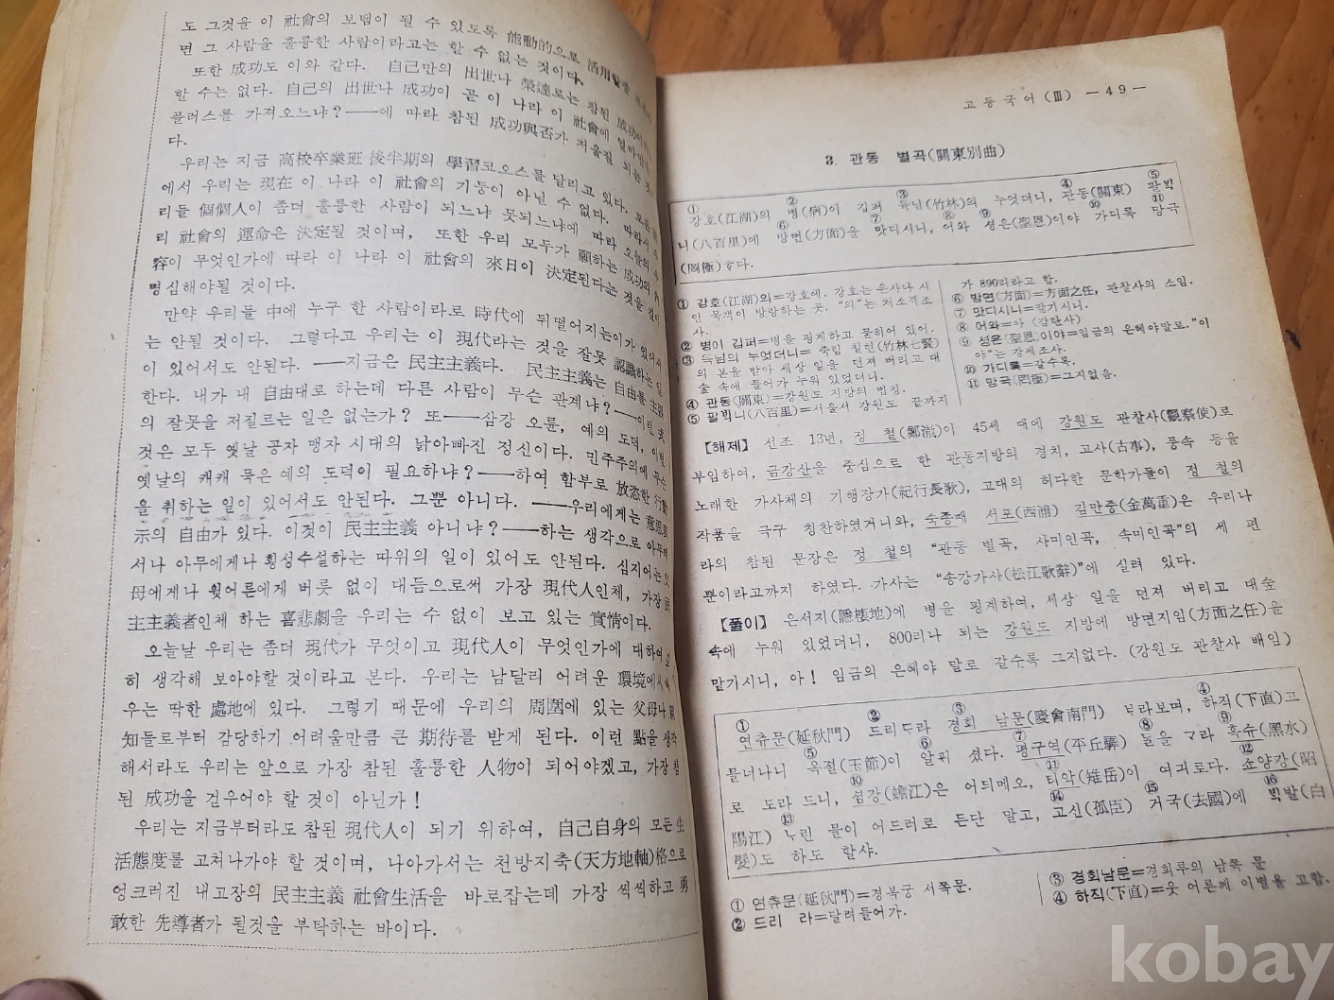 도 그것을 이 社會의 보탬이 될 수 있도록 能動的으로 活用
면 그 사람을 훌륭한 사람이라고는 할 수 없는 것이다.
또한 成功도 이와 같다. 自己만의 出世나 榮達로는 참된 成功이
할 수는 없다. 自己의 出世나 成功이 곧 이 나라 이 社會에 얼마만
플러스를 가져오느냐?——에 따라 참된 成功與否가 저울질 되는 것
다.
우리는 지금 高校卒業班 後半期의 學習코오스를 달리고 있다.
에서 우리는 現在 이 나라 이 社會의 기둥이 아닐 수 없다. 따라서
리들 個個人이 좀더 훌륭한 사람이 되느냐 못되느냐에 따라 오늘의
리 社會의 運命은 決定될 것이며, 또한 우리 모두가 願하는 成功의 內
容이 무엇인가에 따라 이 나라 이 社會의 來日이 決定된다는 것을 깊이
명심해야될 것이다.
만약 우리들 中에 누구 한 사람이라로 時代에 뒤떨어지는이가 있어서
는 안될 것이다. 그렇다고 우리는 이 現代라는 것을 잘못 認識하는 일
이 있어서도 안된다. ——지금은 民主主義다. 民主主義는 自由를 主
한다. 내가 내 自由대로 하는데 다른 사람이 무슨 관계냐?——이런 式
의 잘못을 저질르는 일은 없는가? 또——삼강 오륜, 예의 도덕, 이런
것은 모두 옛날 공자 맹자 시대의 낡아빠진 정신이다. 민주주의에 무슨
옛날의 캐캐 묵은 예의 도덕이 필요하냐?——하여 함부로 放恣한 行動
을 취하는 일이 있어서도 안된다. 그뿐 아니다. ——우리에게는 意思表
示의 自由가 있다. 이것이 民主主義 아니냐?——하는 생각으로 아무데
서나 아무에게나 횡성수설하는 따위의 일이 있어도 안된다. 심지어는 父
母에게나 윗어른에게 버릇 없이 대듬으로써 가장 現代人인체, 가장 民
主主義者인체 하는 喜悲劇을 우리는 수 없이 보고 있는 實情이다.
오늘날 우리는 좀더 現代가 무엇이고 現代人이 무엇인가에 대하여
히 생각해 보아야할 것이라고 본다. 우리는 남달리 어려운 環境에서
우는 딱한 處地에 있다. 그렇기 때문에 우리의 周圍에 있는 父母나
知들로부터 감당하기 어려울만큼 큰 期待를 받게 된다. 이런 點을 생각
해서라도 우리는 앞으로 가장 참된 훌륭한 人物이 되어야겠고, 가장 참
된 成功을 건우어야 할 것이 아닌가!
우리는 지금부터라도 참된 現代人이 되기 위하여, 自己自身의 모든 生
活態度를 고쳐나가야 할 것이며, 나아가서는 천방지축(天方地軸)格으로
엉크러진 내고장의 民主主義 社會生活을 바로잡는데 가장 씩씩하고 勇
敢한 先導者가 될것을 부탁하는 바이다.
고등국어(Ⅲ) —49—
3. 관동 별곡(關東別曲)
① ② ③ ④ ⑤
강호(江湖)의 병(病)이 깁퍼 듁님(竹林)의 누엇더니, 관동(關東) 팔빅
⑥ ⑦ ⑧ ⑨ ⑩ ⑪
니(八百里)에 방면(方面)을 맛디시니, 어와 셩은(聖恩)이야 가디록 망극
(罔極)하다.
① 강호(江湖)의=강호에. 강호는 은사나 시
인 묵객이 방랑하는 곳. "의"는 처소격조
사.
② 병이 깁퍼=병을 핑계하고 못히어 있어.
③ 듁님의 누엇더니=죽림 칠현(竹林七賢)
의 본을 받아 세상 일을 던져 버리고 대
숲 속에 들어가 누워 있었더니.
④ 관동(關東)=강원도 지방의 별칭.
⑤ 팔빅니(八百里)=서울서 강원도 끝까지
가 890리라고 함.
⑥ 방면(方面)=方面之任, 관찰사의 소임.
⑦ 맛디시니=맡기시니.
⑧ 어와=아 (감탄사)
⑨ 셩은(聖恩)이야=임금의 은혜야말로. "이
야"는 강세조사.
⑩ 가디록=갈수록.
⑪ 망극(罔極)=그지없음.
【해제】 선조 13년, 정 철(鄭澈)이 45세 때에 강원도 관찰사(觀察使)로
부임하여, 금강산을 중심으로 한 관동지방의 경치, 고사(古事), 풍속 등을
노래한 가사체의 기행장가(紀行長歌), 고대의 허다한 문학가들이 정 철의
작품을 극구 칭찬하였거니와, 숙종때 서포(西浦) 김만중(金萬重)은 우리나
라의 참된 문장은 정 철의 "관동 별곡, 사미인곡, 속미인곡"의 세 편
뿐이라고까지 하였다. 가사는 "송강가사(松江歌辭)"에 실려 있다.
【풀이】 은서지(隱棲地)에 병을 핑계하여, 세상 일을 던져 버리고 대숲
속에 누워 있었더니, 800리나 되는 강원도 지방에 방면지임(方面之任)을
맡기시니, 아! 임금의 은혜야 말로 갈수록 그지없다. (강원도 관찰사 배임)
① ② ③ ④
연츄문(延秋門) 드리드라 경회 남문(慶會南門) 브라보며, 하직(下直)고
⑤ ⑥ ⑦ ⑧ ⑨
믈너나니 옥졀(玉節)이 알퓌 셧다. 평구역(平丘驛) 믈을 ᄀ라 흑슈(黑水)
⑩ ⑪ ⑫
로 도라 드니, 셤강(蟾江)은 어듸메오, 티악(雉岳)이 여긔로다. 쇼양강(昭
⑬ ⑭ ⑮ ⑯
陽江) 누린 믈이 어드러로 든단 말고, 고신(孤臣) 거국(去國)에 빅발(白
髮)도 하도 할샤.
① 연츄문(延秋門)=경복궁 서쪽문.
② 드리 라=달려들어가.
③ 경회남문=경회루의 남쪽 문
④ 하직(下直)=웃 어른께 이별을 고함.
kobay